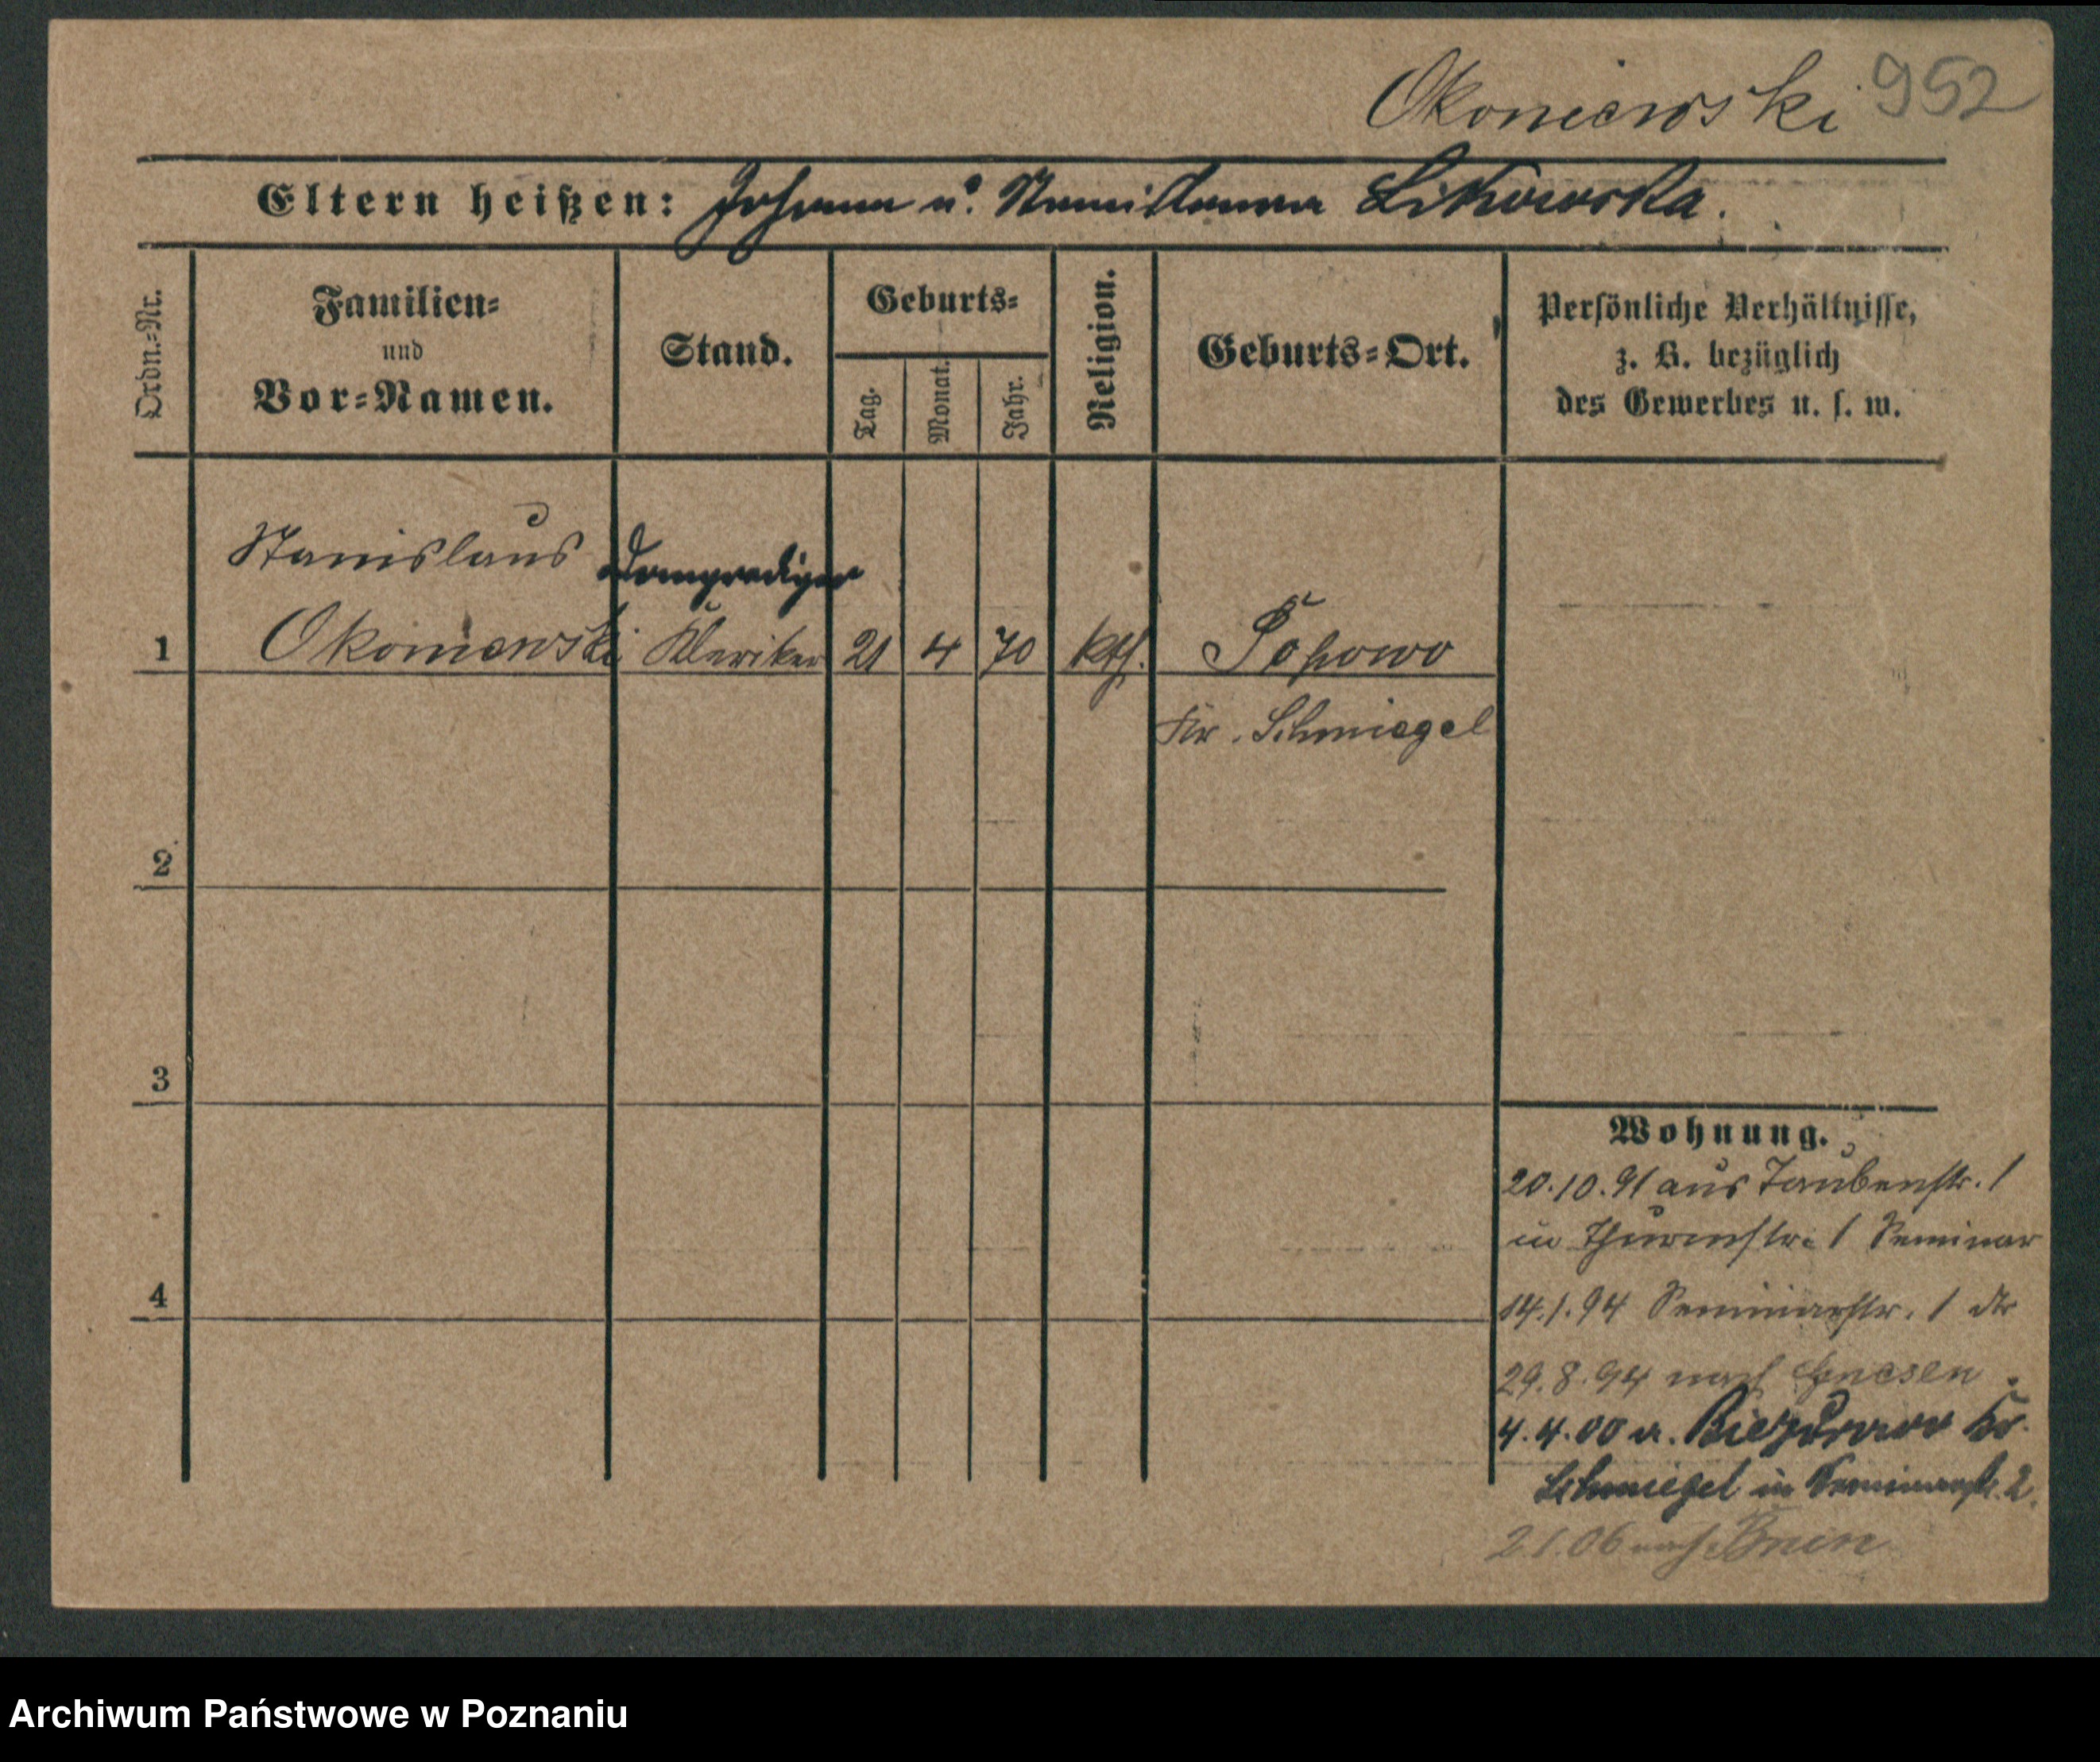 Okoniewski 952
Eltern heißen: Johann u. Stanislawa Likowska.
Ordn.-Nr.
Familien-
und
Vor-Namen.
Stand.
Geburts-
Tag.
Monat.
Jahr.
Religion.
Geburts-Ort.
Persönliche Verhältnisse,
z. B. bezüglich
des Gewerbes u. s. w.
Stanislaus Domprediger
1 Okoniewski Kleriker 21 4 70 kth. Popowo
Kr. Schmiegel
2
3
4
Wohnung.
20.10.91 aus Taubenstr. 1
in Thurmstr. 1 Seminar
14.1.94 Seminarstr. 1
29.8.94 nach Gnesen
4.4.00 a. Kr.
Schmiegel in Seminarstr. 2.
2.1.06 nach Bnin
Archiwum Państwowe w Poznaniu